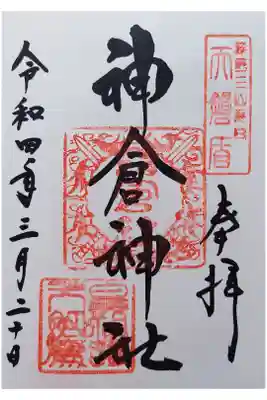 天磐盾
奉拝
神倉神社
令和四年三月二十日